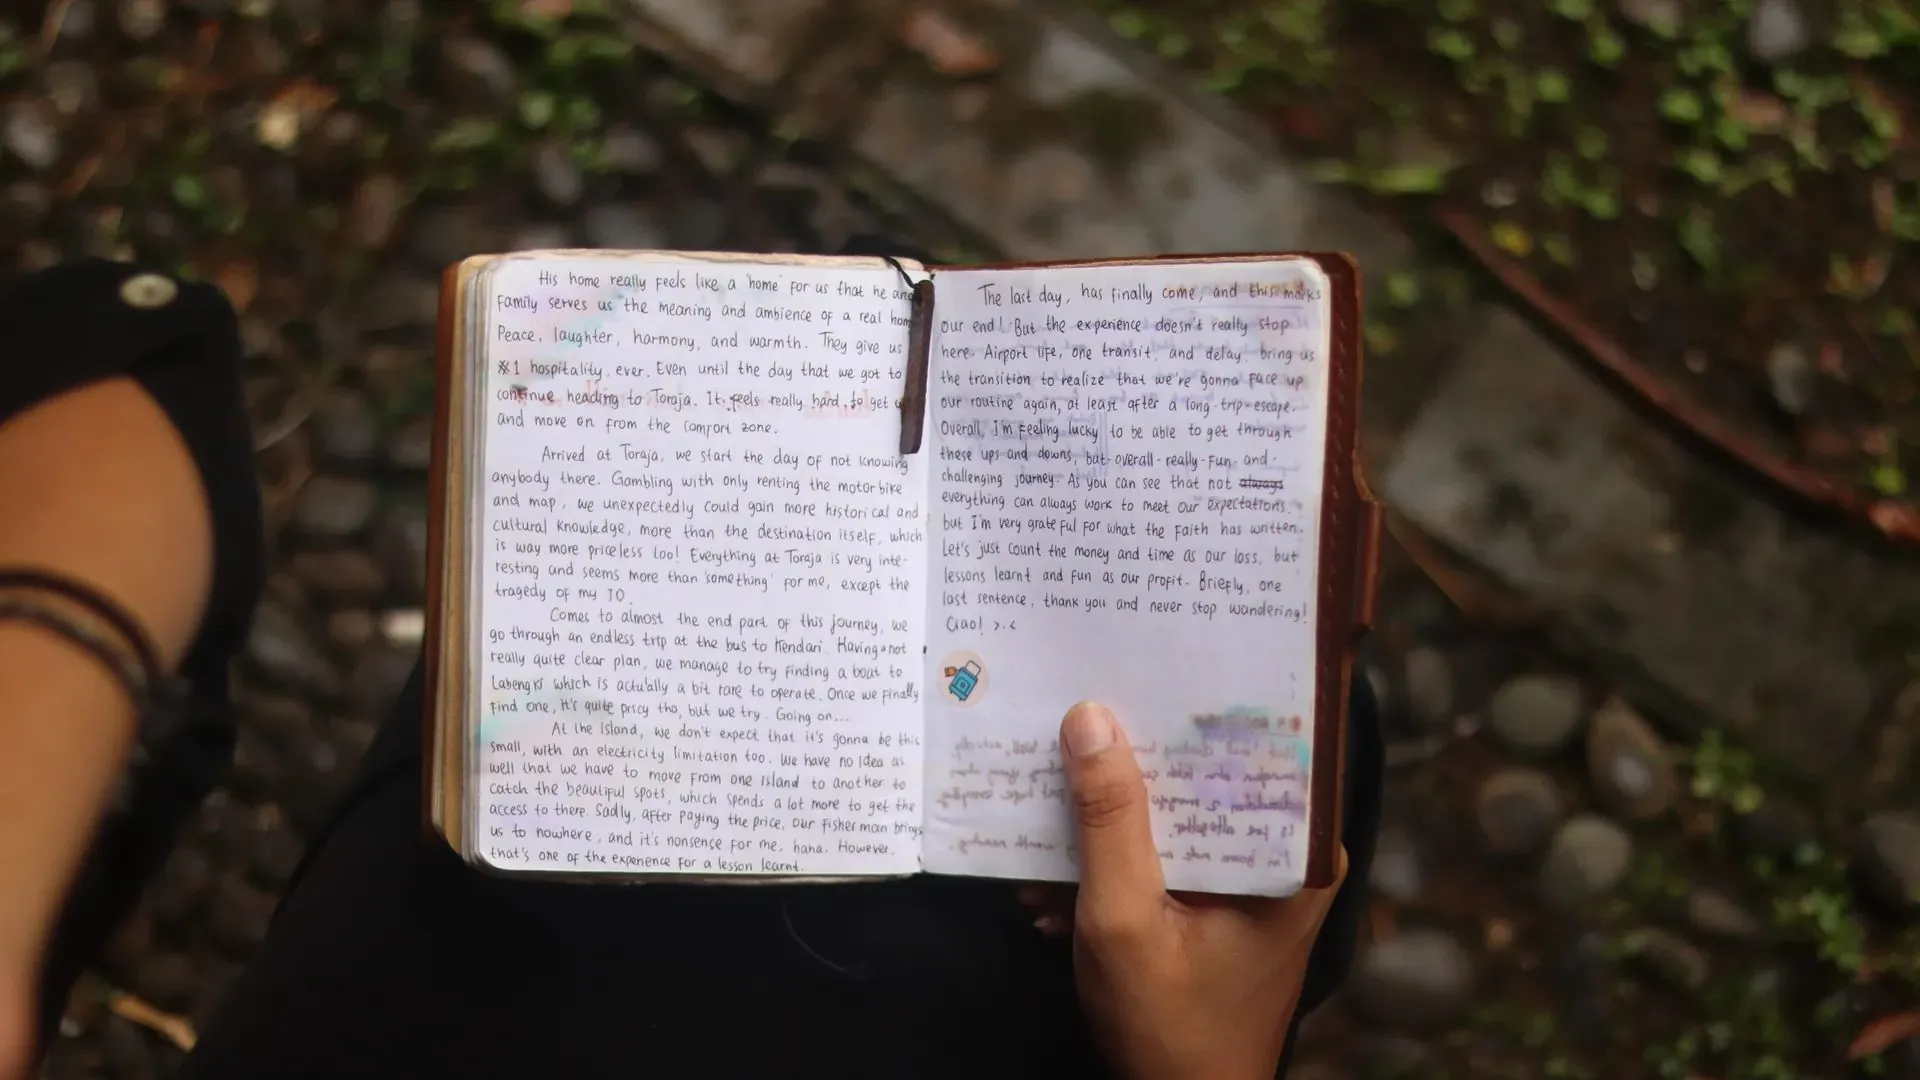 His home really feels like a 'home' for us that he and
family serves us the meaning and ambience of a real hom
Peace, laughter, harmony, and warmth. They give us
※1 hospitality ever. Even until the day that we got to
continue heading to Toraja. It feels really hard to get u
and move on from the comfort zone.
Arrived at Toraja, we start the day of not knowing
anybody there. Gambling with only renting the motorbike
and map, we unexpectedly could gain more historical and
cultural knowledge, more than the destination itself, which
is way more priceless too! Everything at Toraja is very inte-
resting and seems more than 'something' for me, except the
tragedy of my
Comes to almost the end part of this journey, we
go through an endless trip at the bus to Kendari. Having not
really quite clear plan, we manage to try finding a boat to
Labengki which is actually a bit rare to operate. Once we finally
find one, it's quite pricy tho, but we try. Going on...
At the island, we don't expect that it's gonna be this
small, with an electricity limitation too. We have no idea as
well that we have to move from one island to another to
catch the beautiful spots, which spends a lot more to get the
access to there. Sadly, after paying the price, our fisherman brings
us to nowhere, and it's nonsense for me, haha. However,
that's one of the experience for a lesson learnt.
The last day, has finally come, and this marks
our end! But the experience doesn't really stop
here. Airport life, one transit, and delay, bring us
the transition to realize that we're gonna face up
our routine again, at least after a long-trip-escape.
Overall, I'm feeling lucky to be able to get through
these ups and downs, but-overall-really-fun-and-
challenging journey. As you can see that not always
everything can always work to meet our expectations.
but I'm very grateful for what the faith has written.
Let's just count the money and time as our loss, but
lessons learnt and fun as our profit. Briefly, one
last sentence, thank you and never stop wandering!
Ciao! >.<